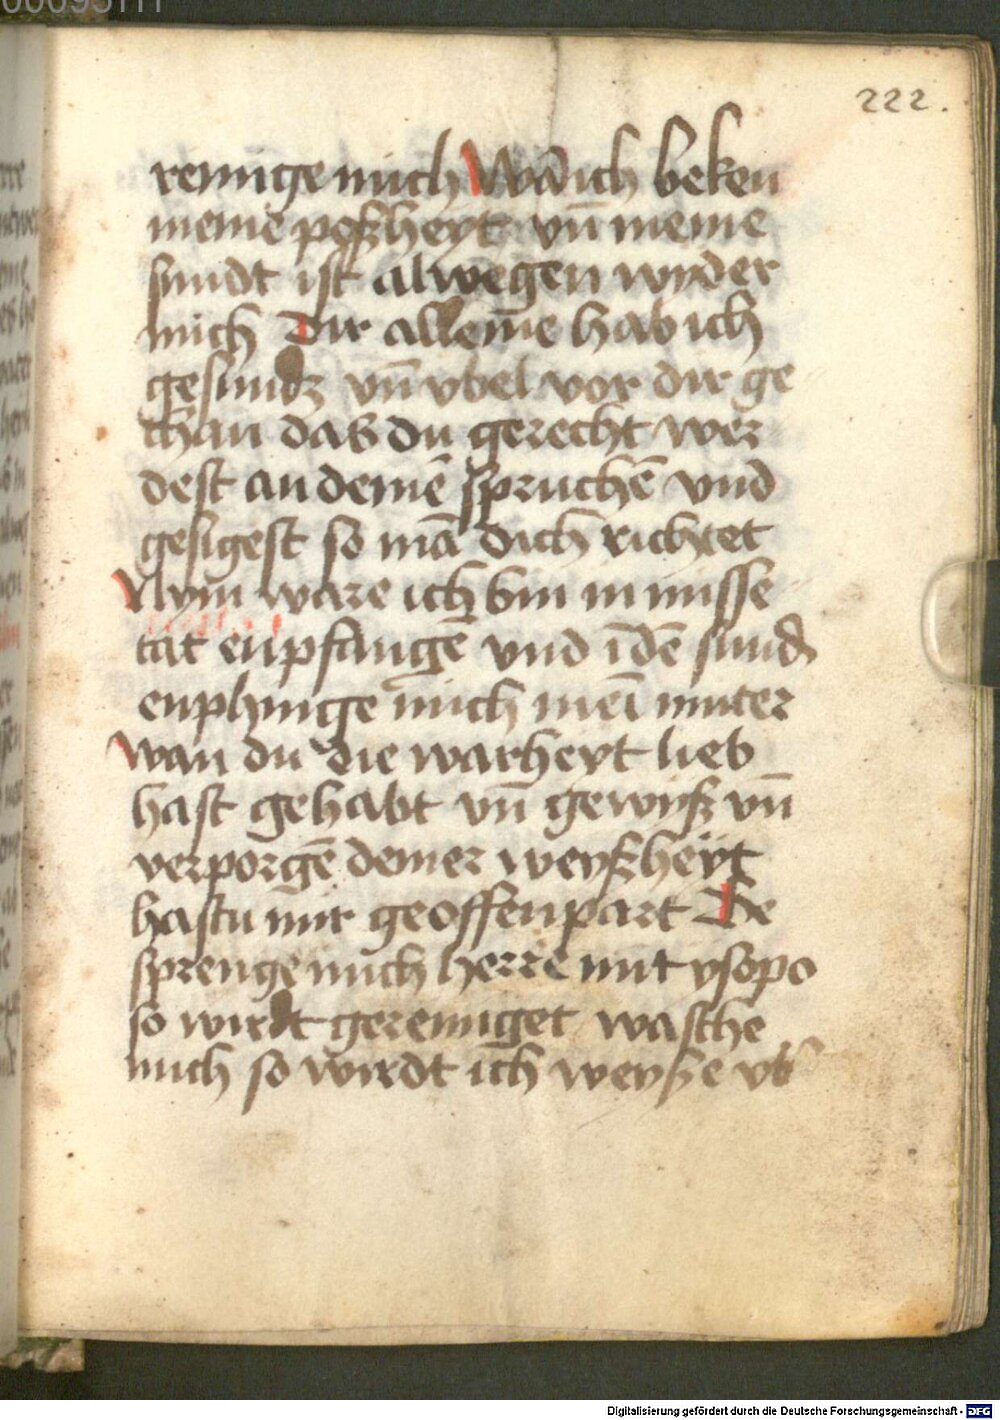 222.
reinige mich Wā ich beken
meine poßheyt vn̄ meine
sundt ist alwegen wyder
mich Dir alleine hab ich
gesundt vn̄ vbel vor dir ge
than das du gerecht wer
dest an deinē spruchē vnd
gesigest so mā dich richtet
Nym ware ich bin in misse
tat enpfangē vnd ī dē sund
enphinge mich meī muter
wan du die warheyt lieb
hast gehabt vn̄ gewyß vn̄
verporgē deiner weyßheyt
hastu mir geoffenpart Be
sprenge mich herre mit ysopo
so wirdt gereiniget wasche
mich so wirdt ich weyße vb
Digitalisierung gefördert durch die Deutsche Forschungsgemeinschaft - DFG